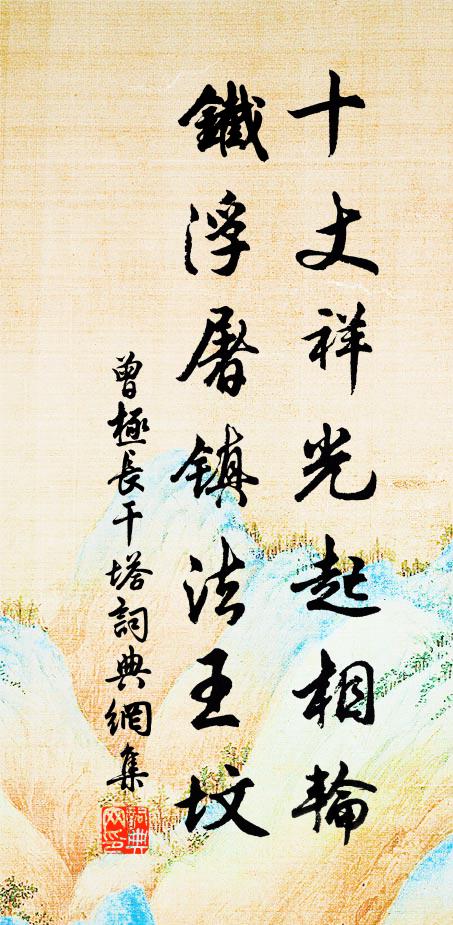 十丈祥光起相輪
鐵浮屠鎮法王坟
曾極長干塔詞典網集
詞典网印